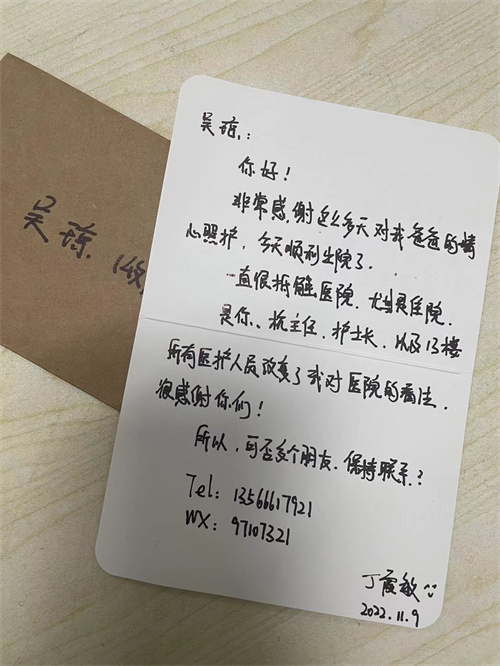 吴琼 (收)
吴琼:
你好!
非常感谢这么多天对我爸爸的精
心照护,今天顺利出院了。
一直很抵触医院,尤其是住院,
是你、杭主任、护士长,以及13楼
所有医护人员改变了我对医院的看法,
很感谢你们!
所以,可否多个朋友,保持联系?
Tel: 13566617921
WX: 97107321
丁霞敏
2022.11.9